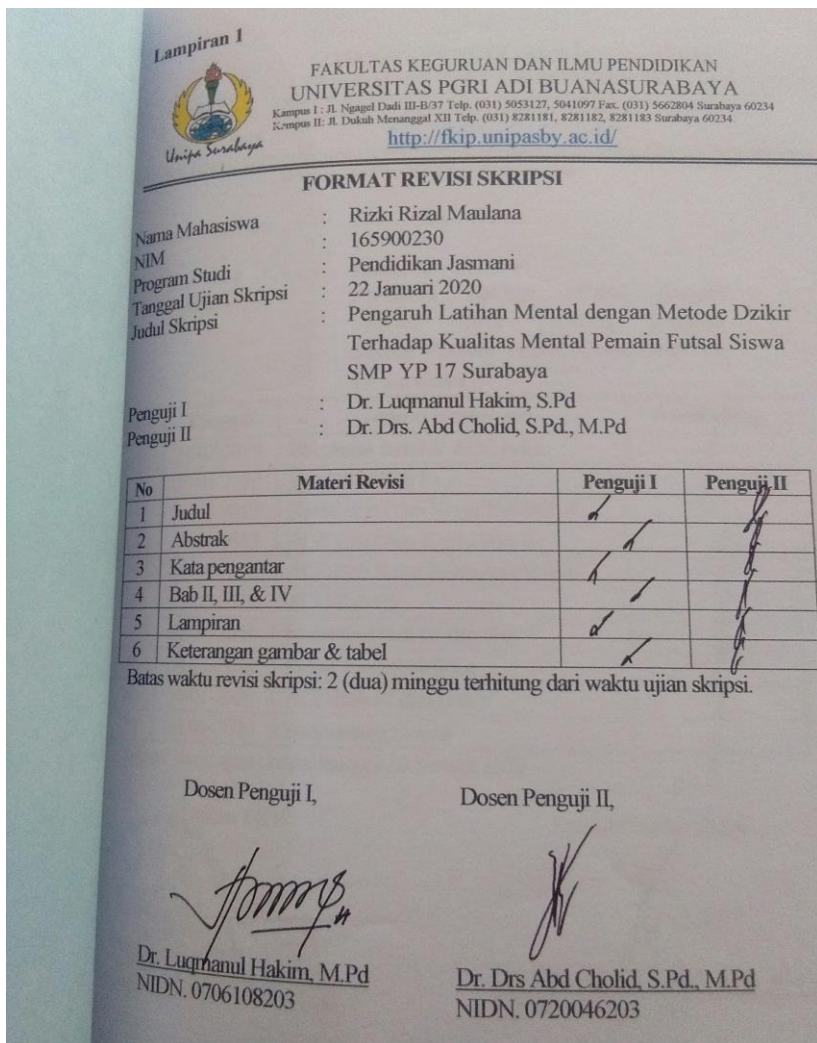 Lampiran 1
FAKULTAS KEGURUAN DAN ILMU PENDIDIKAN
UNIVERSITAS PGRI ADI BUANASURABAYA
Kampus I : Jl. Ngagel Dadi III-B/37 Telp. (031) 5053127, 5041097 Fax. (031) 5662804 Surabaya 60234
Kampus II: Jl. Dukuh Menanggal XII Telp. (031) 8281181, 8281182, 8281183 Surabaya 60234
http://fkip.unipasby.ac.id/
Unipa Surabaya
FORMAT REVISI SKRIPSI
Nama Mahasiswa : Rizki Rizal Maulana
NIM : 165900230
Program Studi : Pendidikan Jasmani
Tanggal Ujian Skripsi : 22 Januari 2020
Judul Skripsi : Pengaruh Latihan Mental dengan Metode Dzikir
Terhadap Kualitas Mental Pemain Futsal Siswa
SMP YP 17 Surabaya
Penguji I : Dr. Luqmanul Hakim, S.Pd
Penguji II : Dr. Drs. Abd Cholid, S.Pd., M.Pd
No Materi Revisi Penguji I Penguji II
1 Judul
2 Abstrak
3 Kata pengantar
4 Bab II, III, & IV
5 Lampiran
6 Keterangan gambar & tabel
Batas waktu revisi skripsi: 2 (dua) minggu terhitung dari waktu ujian skripsi.
Dosen Penguji I, Dosen Penguji II,
Dr. Luqmanul Hakim, M.Pd Dr. Drs Abd Cholid, S.Pd., M.Pd
NIDN. 0706108203 NIDN. 0720046203